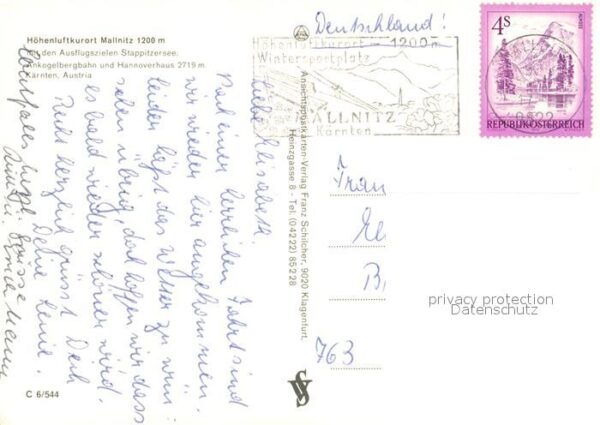 Höhenluftkurort Mallnitz 1200 m
mit den Ausflugszielen Stappitzersee,
Ankogelbergbahn und Hannoverhaus 2719 m.
Kärnten, Austria
Liebe Elisabeth.
Nach einer herrlichen Fahrt sind
wir wieder hier angekommen.
Leider läßt das Wetter zu wün
schen übrig, doch hoffen wir dass
es bald wieder schöner wird.
Recht herzlich grüsst Dich
Deine
Grüsse
C 6/544
Ansichtspostkarten-Verlag Franz Schilcher, 9020 Klagenfurt,
Heinzgasse 8 - Tel. (04222) 85 2 28
Deutschland!
Höhenluftkurort - 1200 m
Wintersportplatz
MALLNITZ
Kärnten
4S
REPUBLIK ÖSTERREICH
9822
Frau
El
B
763
privacy protection
Datenschutz